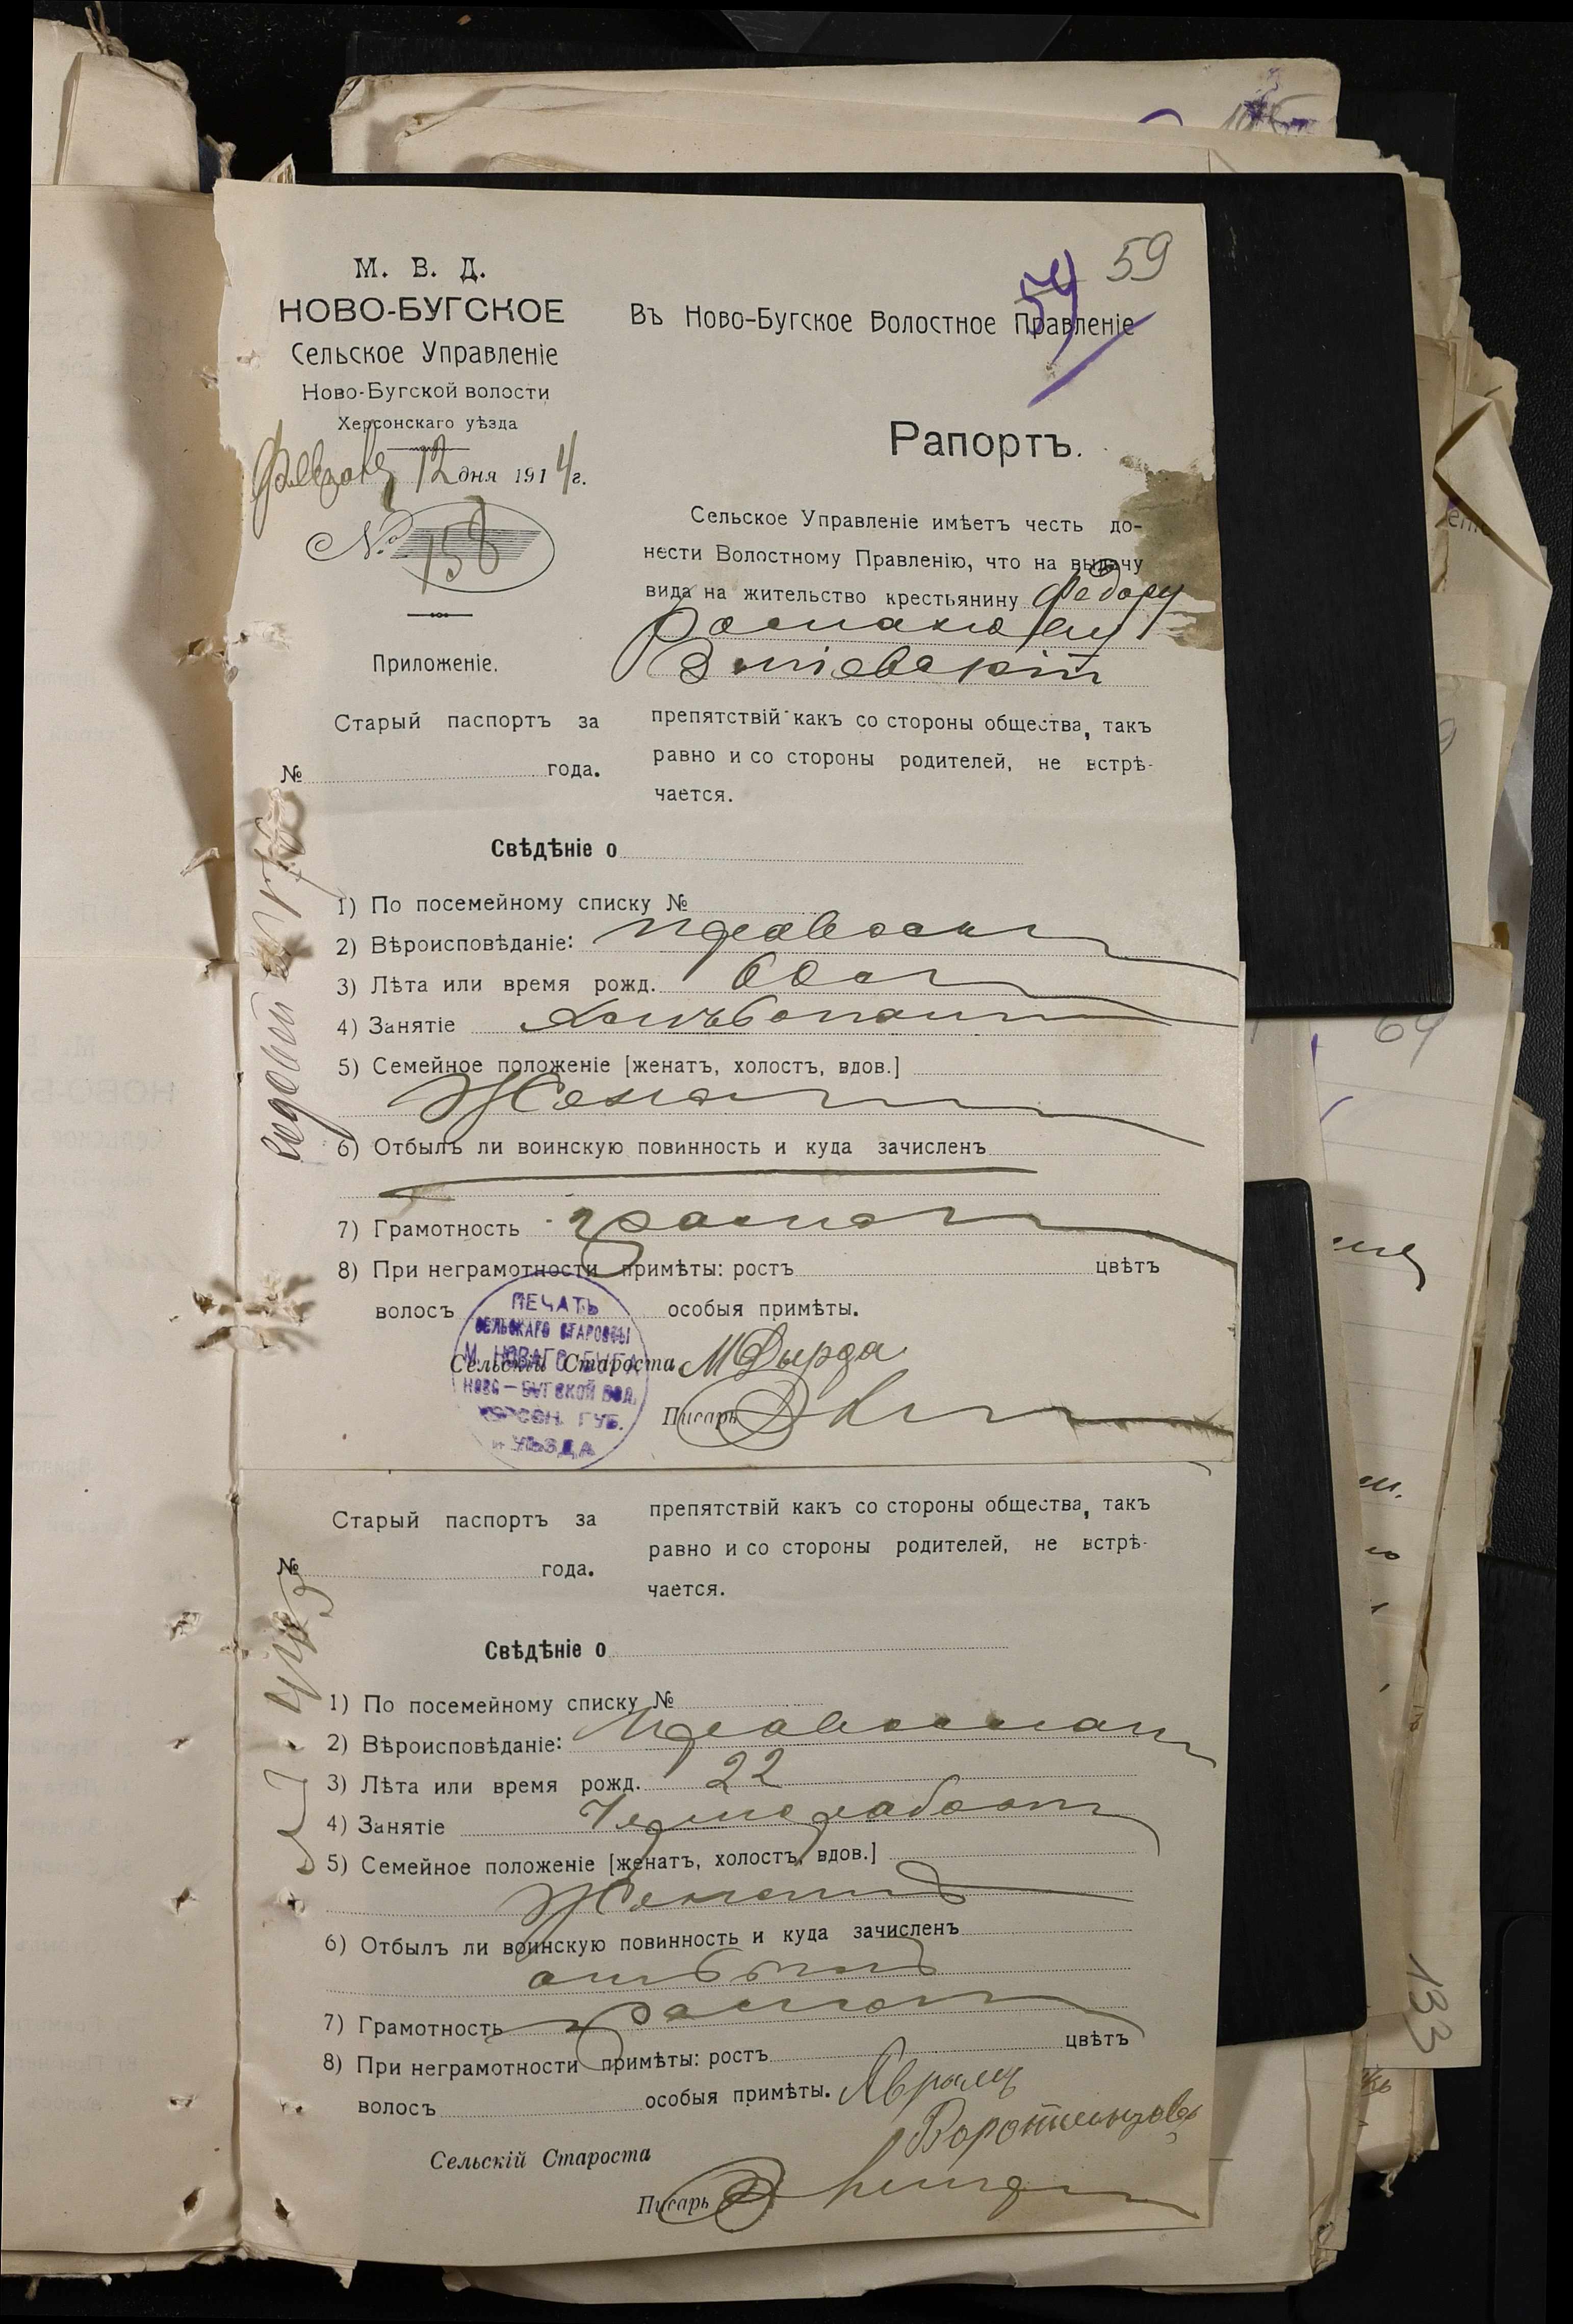 59
54
М. В. Д.
НОВО-БУГСКОЕ
Сельское Управленіе
Ново-Бугской волости
Херсонскаго уѣзда
12 дня 1914 г.
№ 158
Приложеніе.
Старый паспортъ за
№ года.
Въ Ново-Бугское Волостное Правленіе
Рапортъ.
Сельское Управленіе имѣетъ честь до-
нести Волостному Правленію, что на выдачу
вида на жительство крестьянину Федору
препятствій какъ со стороны общества, такъ
равно и со стороны родителей, не встрѣ-
чается.
Свѣдѣніе о
1) По посемейному списку №
2) Вѣроисповѣданіе: православн
3) Лѣта или время рожд.
4) Занятіе
5) Семейное положеніе [женатъ, холостъ, вдов.]
Женат
6) Отбылъ ли воинскую повинность и куда зачисленъ
7) Грамотность грамот
8) При неграмотности примѣты: ростъ цвѣтъ
волосъ особыя примѣты.
ПЕЧАТЬ
СЕЛЬСКАГО СТАРОСТЫ
М. НОВАГО-БУГА
НОВО-БУГСКОЙ ВОЛ.
ХЕРСОН. ГУБ.
и УѢЗДА
Сельскій Староста М Дырда
Писарь
Старый паспортъ за
№ года.
препятствій какъ со стороны общества, такъ
равно и со стороны родителей, не встрѣ-
чается.
Свѣдѣніе о
1) По посемейному списку №
2) Вѣроисповѣданіе: православн
3) Лѣта или время рожд. 22
4) Занятіе Чернорабоч
5) Семейное положеніе [женатъ, холостъ, вдов.]
Женатъ
6) Отбылъ ли воинскую повинность и куда зачисленъ
отбылъ
7) Грамотность грамот
8) При неграмотности примѣты: ростъ цвѣтъ
волосъ особыя примѣты.
Сельскій Староста
Писарь
64
133